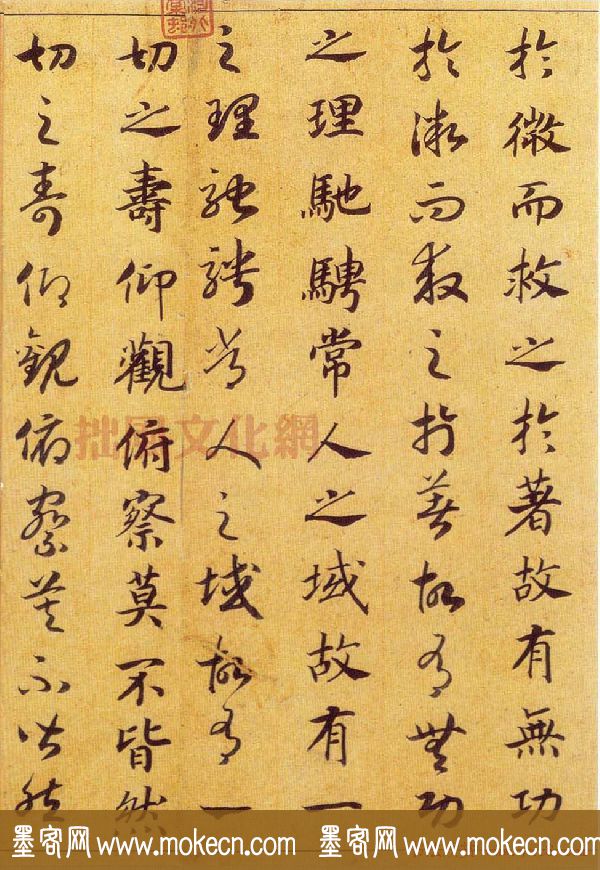 於微而救之於著故有無功
於微而救之於著故有無功
之理馳騁常人之域故有一
之理馳騁常人之域故有一
切之壽仰觀俯察莫不皆然
切之壽仰觀俯察莫不皆然
拙風文化網
墨客网 www.mokecn.com 墨客网 www.mokecn.com